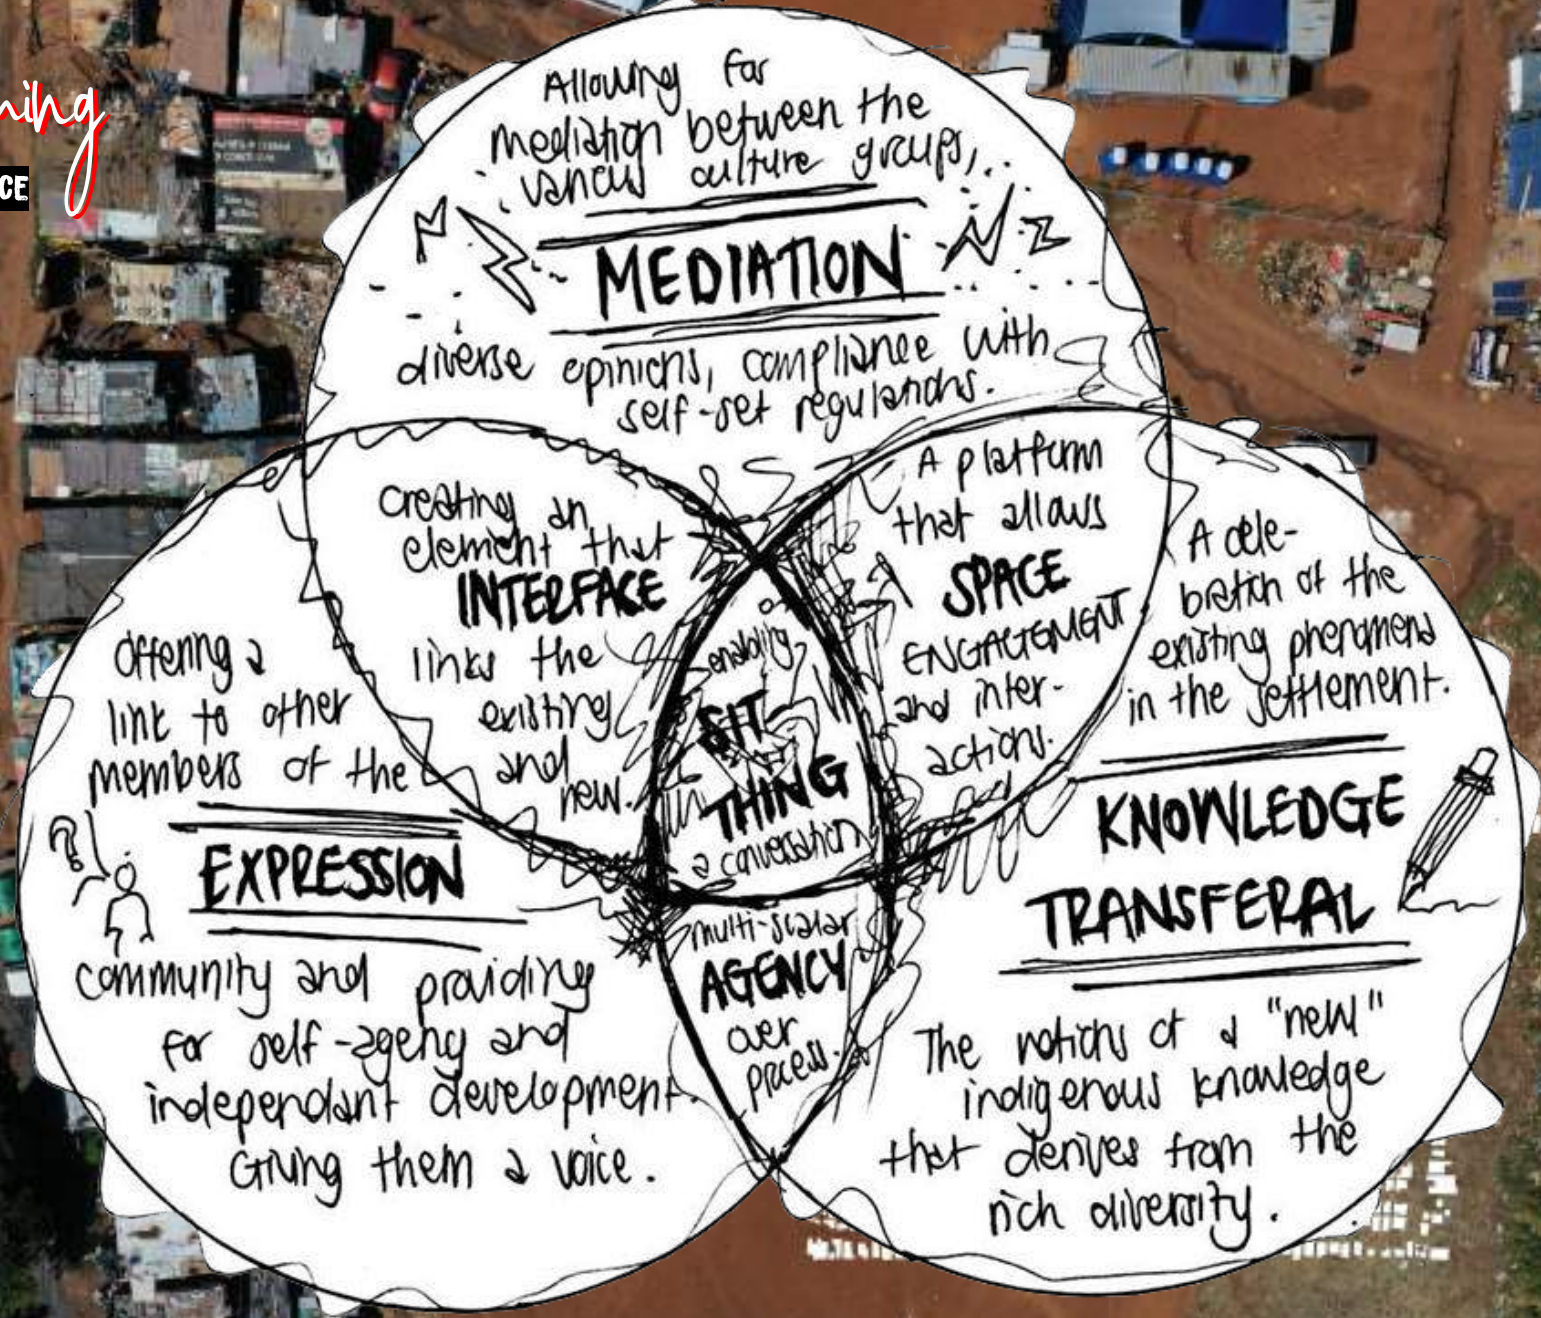 ning
CE
Allowing for
mediation between the
various culture groups,
MEDIATION
diverse opinions, compliance with
self-set regulations.
creating an
element that
INTERFACE
links the
existing
and
new.
A platform
that allows
SPACE
ENGAGEMENT
and inter-
actions.
enabling
SIT
THING
a conversation
multi-scalar
AGENCY
over
process.
Offering a
link to other
members of the
EXPRESSION
community and providing
for self-agency and
independant development.
Giving them a voice.
A cele-
bration of the
existing phenomena
in the settlement.
KNOWLEDGE
TRANSFERAL
The notions of a "new"
indigenous knowledge
that derives from the
rich diversity.